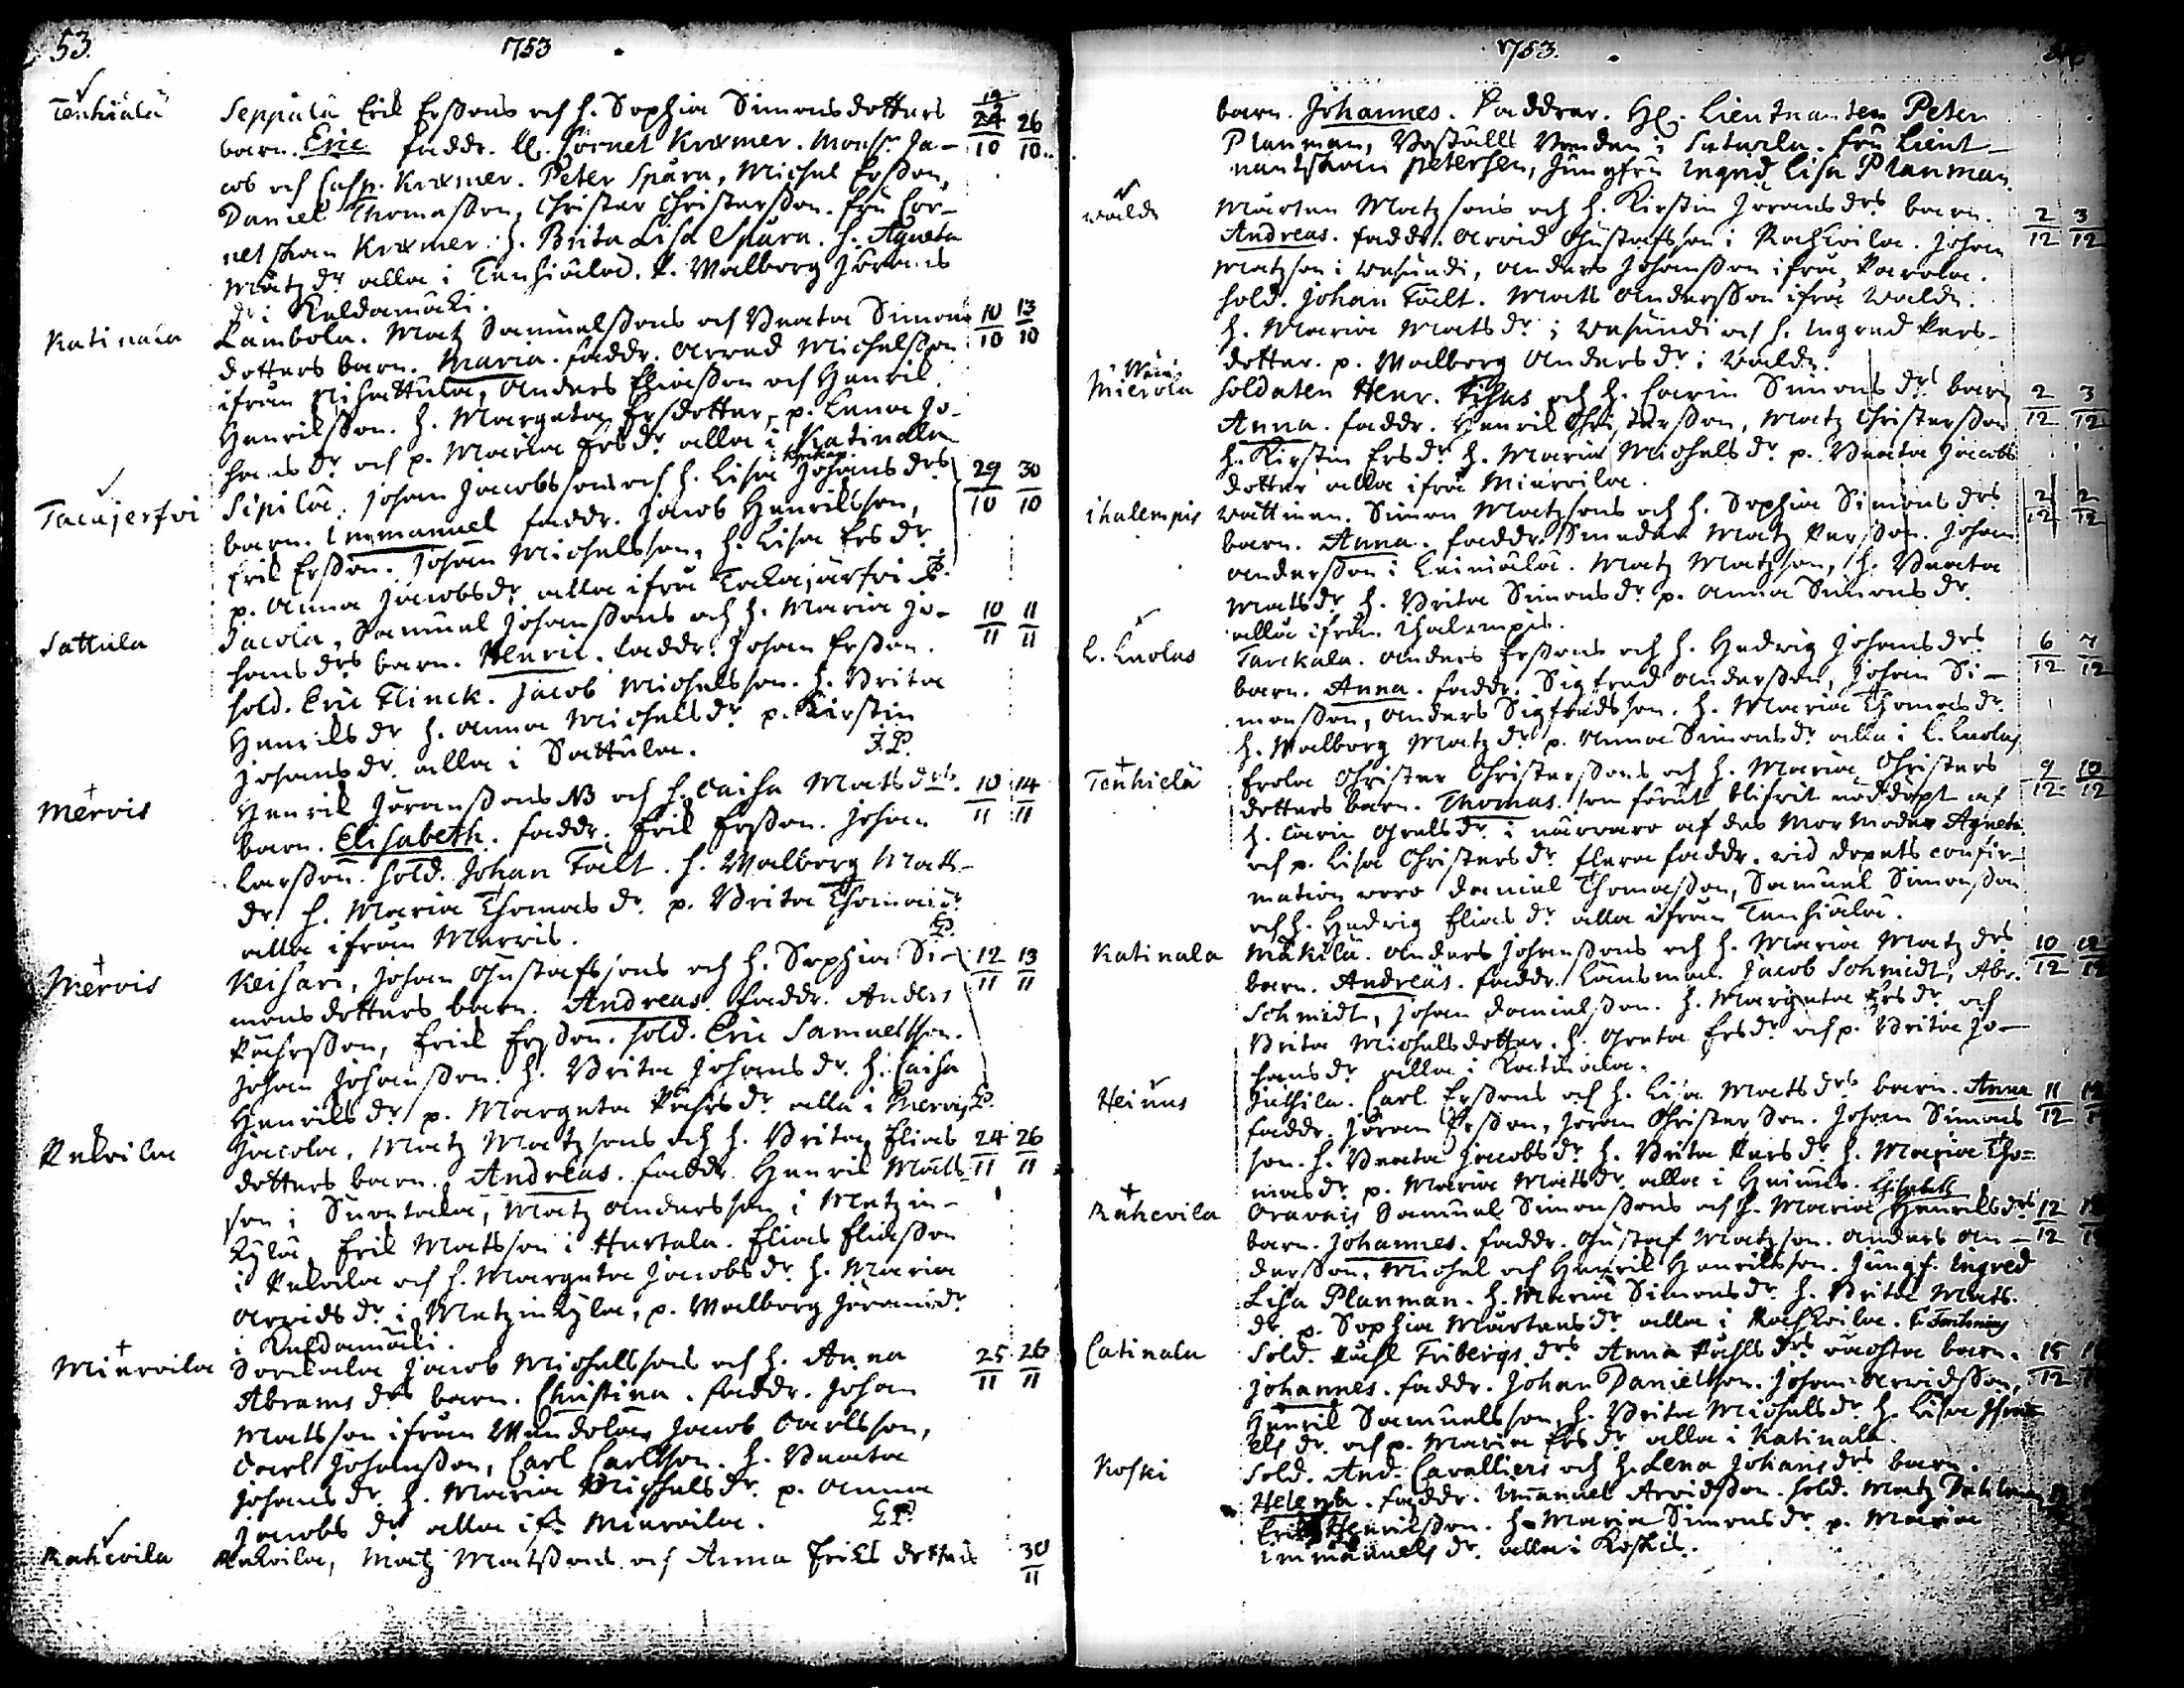 53.
1753
Tenhiälä Seppälä Erik Erssons och h. Sophia Simonsdotters 24/10 26/10
barn. Eric faddr. H. Cornet Kræmer. Mons:r Ja-
cob och Casp. Kræmer. Peter Spåra, Michel Ersson,
Daniel Thomasson, Christer Christersson. fru Cor-
netskan Kræmer. h. Brita Lisa Spåra. h. Agneta
Matz dr alla i Tenhiälä. p. Walborg Jörans
dr i Keldamäki.
Katinala Lambola. Matz Samuelssons och Beata Simons 10/10 13/10
dotters barn. Maria. faddr. Arved Michelsson
ifrån Nihattula, Anders Eliasson och Henric
Henricsson. h. Margeta Ersdotter, p. Lena Jo-
hans dr och p. Maria Ers dr alla i Katinala
Tacajerfvi Sipilä. Johan Jacobssons och h. Lisa Johans drs 29/10 30/10
barn. Immanuel faddr. Jacob Henricsson,
Erik Ersson. Johan Michelsson, h. Lisa Ers dr.
p. Anna Jacobs dr alla ifrå Takajärfvi
Sattula Jacola, Samuel Johanssons och h. Maria Jo- 10/11 11/11
hans drs barn. Henric. faddr. Johan Ersson.
sold. Eric Flinck. Jacob Michelsson. h. Brita
Henrics dr h. Anna Michels dr p. Kirstin
Johans dr alla i Sattula. J.P.
Mervis Henrik Jöranssons NB och h. Caisa Mats drs. 10/11 14/11
barn. Elisabeth. faddr. Erik Ersson. Johan
Larsson. sold. Johan Fält. h. Walborg Matts-
dr h. Maria Thomas dr. p. Brita Thomas dr
alla ifrån Mervis.
Mervis Keisari, Johan Gustafssons och h. Sophia Si- 12/11 13/11
monsdotters barn. Andreas. faddr. Anders
Påhlsson, Erick Ersson. sold. Eric Samuelsson.
Johan Johansson. h. Brita Johans dr. h. Caisa
Henrics dr p. Margeta Påhls dr alla i Mervis
Pekoila Jacola, Matz Matzsons och h. Brita Elias 24/11 26/11
dotters barn. Andreas. faddr. Henric Matts-
son i Suontala, Matz Andersson i Metzin-
kylä, Erik Matsson i Hurtala. Elias Eliasson
i Pekoila och h. Margeta Jacobs dr h. Maria
Arvids dr i Metzinkylä, p. Walborg Jörans dr
i Keldamäki.
Miervoila Jacob Michelssons och h. Anna 25/11 26/11
Abrams drs barn. Christina. faddr. Johan
Matsson ifrån Jacob Carlsson,
Carl Johansson, Carl Carlsson. h. Beata
Johans dr. h. Maria Michels dr. p. Anna
Jacobs dr alla if. Miervoila.
Rahcoila Pekoila, Matz Matssons och Anna Ericsdotters 30/11
1753.
barn. Johannes. Faddrar. H. Lieutnanten Peter
Planman, Boställs i Saterla. fru Lieut-
nantskan Petersen, Jungfru Ingrid Lisa Planman.
Walde Mårten Matzsons och h. Kirstin Jörans drs barn. 2/12 3/12
Andreas. faddr. Arvid Gustafsson i Rachkoila. Johan
Matzson i Wesundi, Anders Johansson ifrå Parola.
sold. Johan Fält. Mats Andersson ifrå Walde.
h. Maria Mats dr i Wesundi och h. Ingred Pers-
dotter. p. Walborg Anders dr i Walde.
Mierola Soldaten Henr. och h. Carin Simons drs barn 2/12 3/12
Anna. faddr. Henric Christersson, Matz Christersson
h. Kirstin Ers dr h. Maria Michels dr p. Beata Jacobs
dotter alla ifrå Miervoila.
ihalempis Wättinen. Simon Matzsons och h. Sophia Simons drs 2/12 2/12
barn. Anna. faddr. Smeden Matz Persson. Johan
Andersson i Leiniälä. Matz Matzson, h. Beata
Mats dr h. Brita Simons dr p. Anna Simons dr
alla ifrån Ihalempis.
L. Luolas Tarckala. Anders Erssons och h. Hedvig Johans drs 6/12 7/12
barn. Anna. faddr. Sigfred Andersson, Johan Si-
monsson, Anders Sigfredsson. h. Maria Thomas dr.
h. Walborg Matz dr p. Anna Simons dr alla i L. Luolas
Tenhiälä Erola Christer Christerssons och h. Maria Christers 9/12 10/12
dotters barn. Thomas. som förut blifvit nöddöpt af
h. Carin Grels dr i närvaro af des Mormoder Agneta
och p. Lisa Christers dr. flera faddr. vid dopets confir-
mation voro Daniel Thomasson, Samuel Simonsson
och h. Hedvig Elias dr alla ifrån Tenhiälä.
Katinala Mäkilä. Anders Johanssons och h. Maria Matz drs 10/12 12/12
barn. Andreas. faddr. Länsman. Jacob Schmidt, Abr.
Schmidt, Johan Danielsson. h. Margeta Ers dr och
Brita Michelsdotter. h. Greta Ers dr och p. Brita Jo-
hans dr alla i Katinala.
Heinus Juthila. Carl Erssons och h. Lisa Mats drs barn. Anna 11/12
faddr. Jöran Persson, Jöran Christersson. Johan Simons
son. h. Beata Jacobs dr h. Brita Pers dr h. Maria Tho-
mas dr p. Maria Mats dr alla i Heinus.
Rahcoila Oravais Samuel Simonssons och h. Maria Elisabeth Henrics drs 12/12
barn. Johannes. faddr. Gustaf Matzson. Anders An-
dersson, Michel och Henric Henricsson. Jungf. Ingred
Lisa Planman. h. Maria Simons dr h. Brita Mats.
dr p. Sophia Mårtens dr alla i Rachkoila.
Catinala Sold. Påhl Fribergs drs Anna Påhls drs oächta barn. 15/12
Johannes. faddr. Johan Danielsson. Johan Arvidsson,
Henric Samuelsson, h. Brita Michels dr h. Lisa
els dr och p. Maria Ers dr alla i Katinala.
Koski Sold. And. Cavalliers och h. Lena Johans drs barn.
Helena. faddr. Emanuel Arvidsson. sold. Matz
Erik Henricsson. h. Maria Simons dr p. Maria
Immanuels dr alla i Koskis.